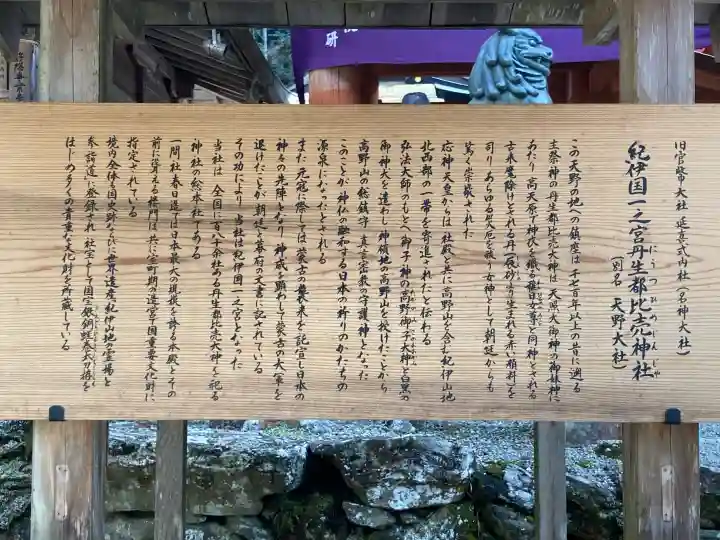 旧官幣大社 延喜式内社(名神大社)
紀伊国一之宮丹生都比売神社
にうつひめじんじゃ
(別名 天野大社)
この天野の地への鎮座は 千七百年以上の昔に遡る
主祭神の丹生都比売大神は 天照大御神の御妹神に
あたり 高天原で神衣を織る稚日女尊と同神とされる
古来魔除けとされる丹(辰砂より生まれる赤い顔料)を
司り あらゆる災厄を祓う女神として朝廷からも
篤く崇敬された
応神天皇からは 社殿と共に高野山を含む紀伊山地
北西部の一帯を寄進されたと伝わる
弘法大師のもとへ 御子神の高野御子大神と白黒の
御神犬を遣わし 神領地の高野山を授けたことから
高野山の総鎮守 真言密教の守護神となった
このことが神仏の融和する日本の祈りのかたちの
源泉になったとされる
また 元寇に際しては 蒙古の襲来を託宣し日本の
神々の先陣となり 神威を顕わして蒙古の大軍を
退けたことが 朝廷と幕府の文書に記されている
その功により 当社は紀伊国一之宮となった
当社は 全国に百八十余社ある丹生都比売大神を祀る
神社の総本社である
一間社春日造では日本最大の規模を誇る本殿とその
前に聳える楼門は 共に室町期の造営で国重要文化財に
指定されている
境内全体が国史跡ならびに世界遺産「紀伊山地の霊場と
参詣道」に登録され 社宝として国宝銀銅蛭巻太刀拵を
はじめ多くの貴重な文化財を所蔵している